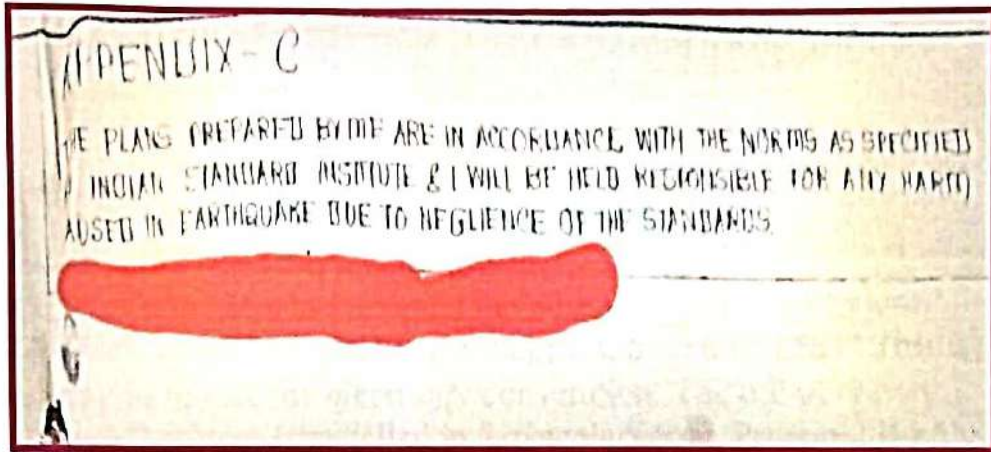 APPENDIX - C
HE PLANS PREPARED BY ME ARE IN ACCORDANCE WITH THE NORMS AS SPECIFIED
INDIAN STANDARD INSTITUTE & I WILL BE HELD RESIONSIBLE FOR ANY HARM
AUSED IN EARTHQUAKE DUE TO NEGLIENCE OF THE STANDARDS.